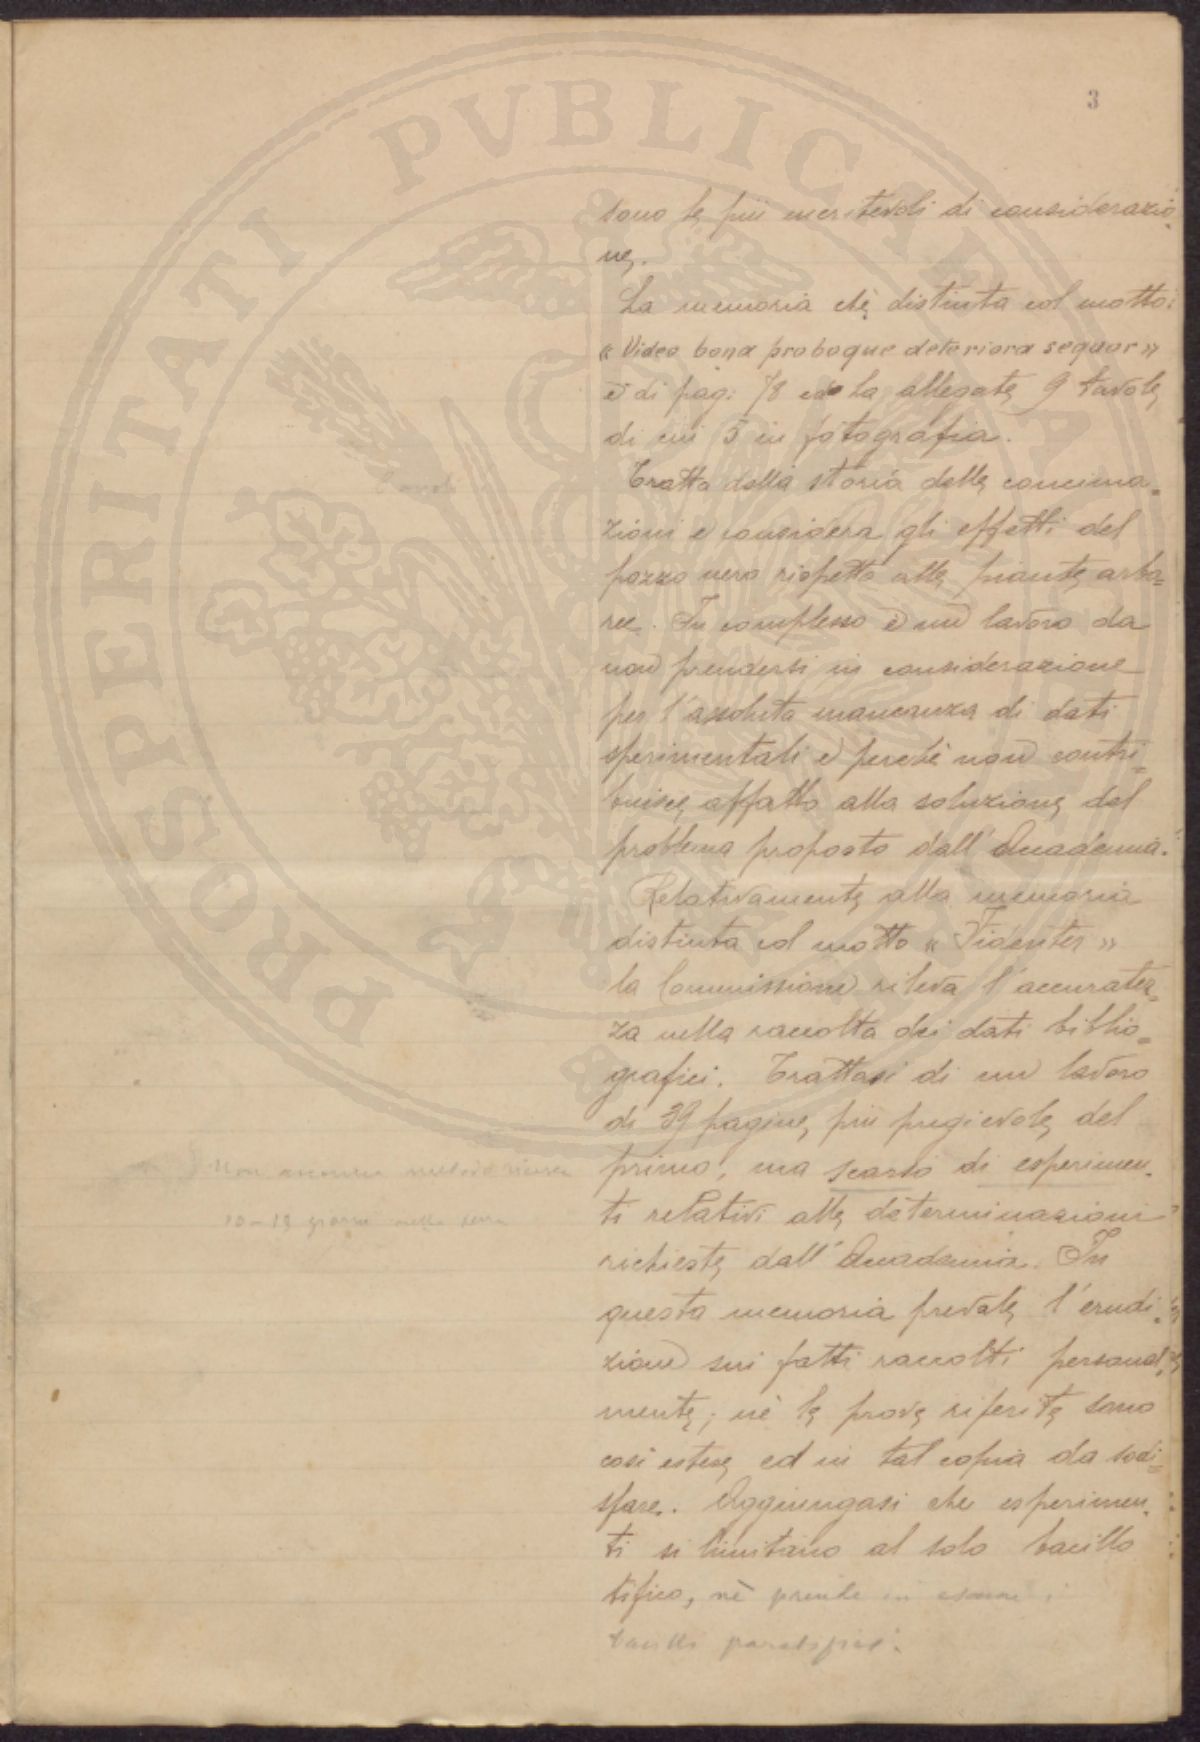 3
sono le più meritevoli di considerazio
ne.
La memoria che distinta col motto:
« Video bona proboque deteriora sequor »
è di pag: 78 ed ha allegate 9 tavole
di cui 5 in fotografia.
Tratta della storia delle concima=
zioni e considera gli effetti del
pozzo nero rispetto alle piante arbo=
ree. In complesso è un lavoro da
non prendersi in considerazione
per l'assoluta mancanza di dati
sperimentali e perchè non contri=
buisce affatto alla soluzione del
problema proposto dall'Accademia.
Relativamente alla memoria
distinta col motto « Fidenter »
la Commissione rileva l'accuratez=
za nella raccolta dei dati biblio=
grafici. Trattasi di un lavoro
di 39 pagine, più pregievole del
primo, ma scarso di esperimen=
ti relativi alle determinazioni
richieste dall'Accademia. In
questa memoria prevale l'erudi=
zione sui fatti raccolti personal=
mente; nè le prove riferite sono
così estese ed in tal copia da sodi=
sfare. Aggiungasi che esperimen=
ti si limitano al solo bacillo
tifico, nè prende in esame i
bacilli paratifici.
Non
10-19 giorni nella terra
PROSPERITATI PVBLICAE